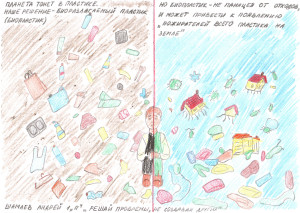 ПЛАНЕТА ТОНЕТ В ПЛАСТИКЕ.
НАШЕ РЕШЕНИЕ - БИОРАЗЛАГАЕМЫЙ ПЛАСТИК
(БИОПЛАСТИК)
НО БИОПЛАСТИК - НЕ ПАНАЦЕЯ ОТ ОТХОДОВ,
И МОЖЕТ ПРИВЕСТИ К ПОЯВЛЕНИЮ
"ПОЖИРАТЕЛЕЙ ВСЕГО ПЛАСТИКА НА
ЗЕМЛЕ"
АНДРЕЙ "РЕШАЯ ПРОБЛЕМЫ, НЕ СОЗДАВАЙ ДРУГИЕ"